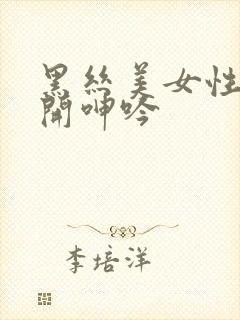 黑丝美女性
開呻吟
李培洋